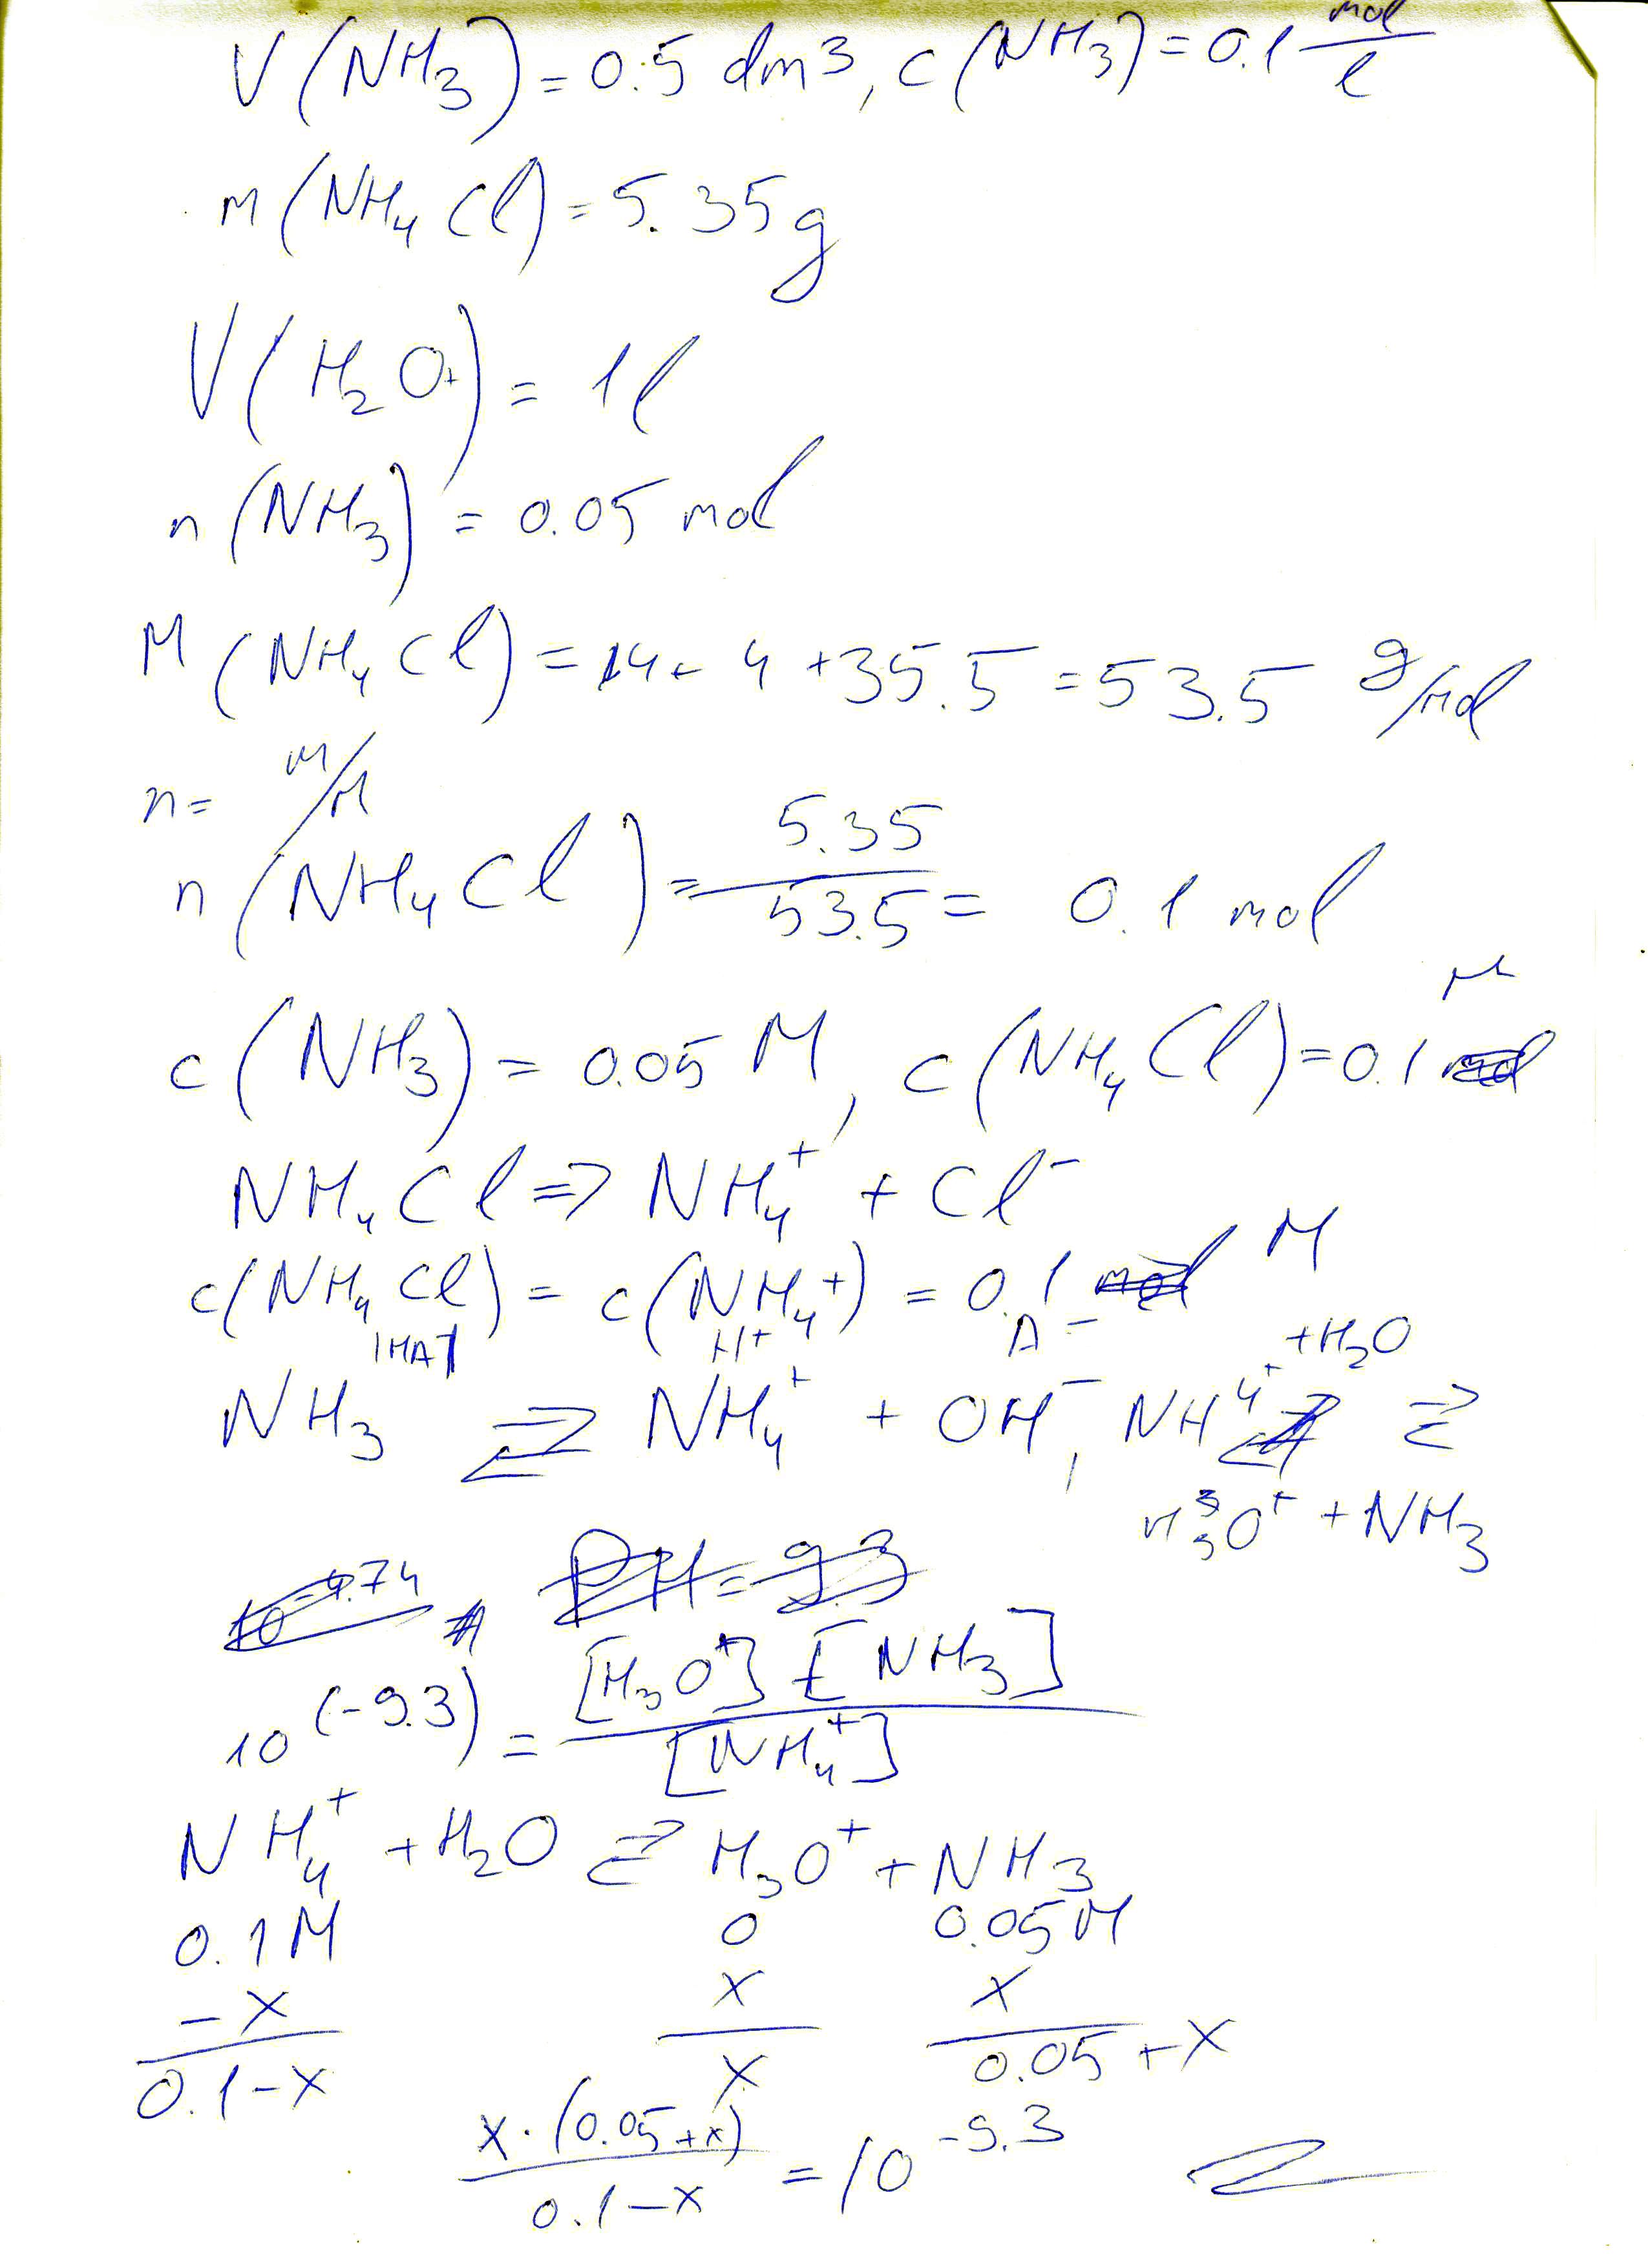 V(NH3) = 0.5 dm3, c(NH3) = 0.1 mol/l
m(NH4Cl) = 5.35g
V(H2O) = 1l
n(NH3) = 0.05 mol
M(NH4Cl) = 14+4+35.5 = 53.5 g/mol
n = m/M
n(NH4Cl) = 5.35/53.5 = 0.1 mol
c(NH3) = 0.05 M, c(NH4Cl) = 0.1 M
NH4Cl => NH4+ + Cl-
c(NH4Cl) = c(NH4+) = 0.1 M
|HA| H+ A-
NH3 ⇌ NH4+ + OH-, NH4+ +H2O ⇌
H3O+ + NH3
10^-4.74 PH=9.3
10^(-9.3) = [H3O+] [NH3] / [NH4+]
NH4+ + H2O ⇌ H3O+ + NH3
0.1M 0 0.05M
-x x x
0.1-x x 0.05+x
x·(0.05+x) / 0.1-x = 10^-9.3